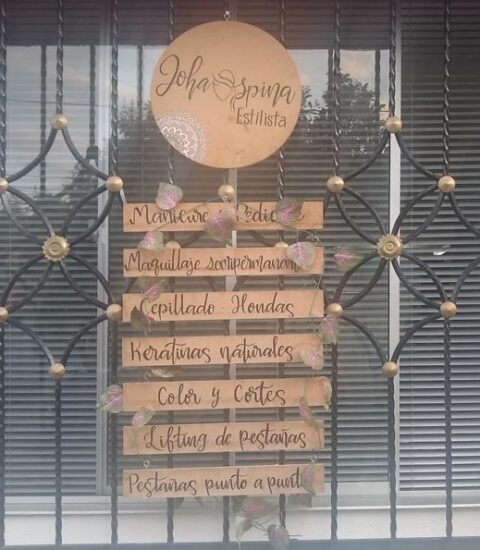 Joha Ospina
Estilista
Manicure y Pedicure
Maquillaje semipermanente
Cepillado - Hondas
Keratinas naturales
Color y Cortes
Lifting de pestañas
Pestañas punto a punto